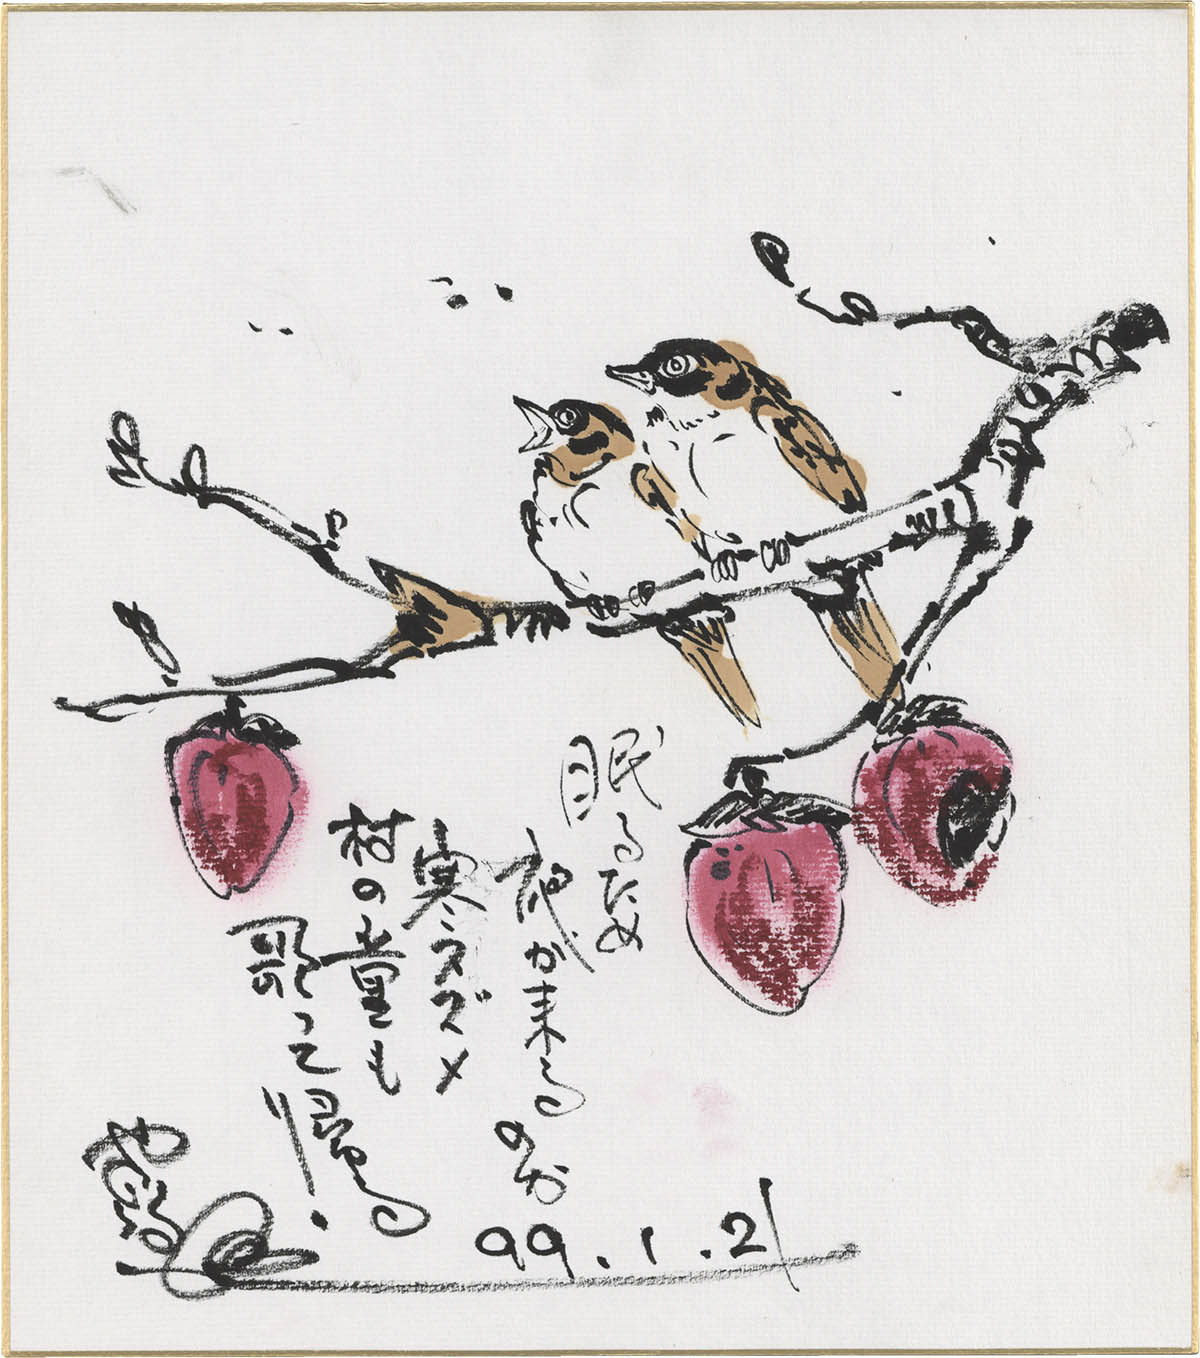 眠るため
夜が来るのか
寒スズメ
村の童も
歌って帰る!
99.1.21